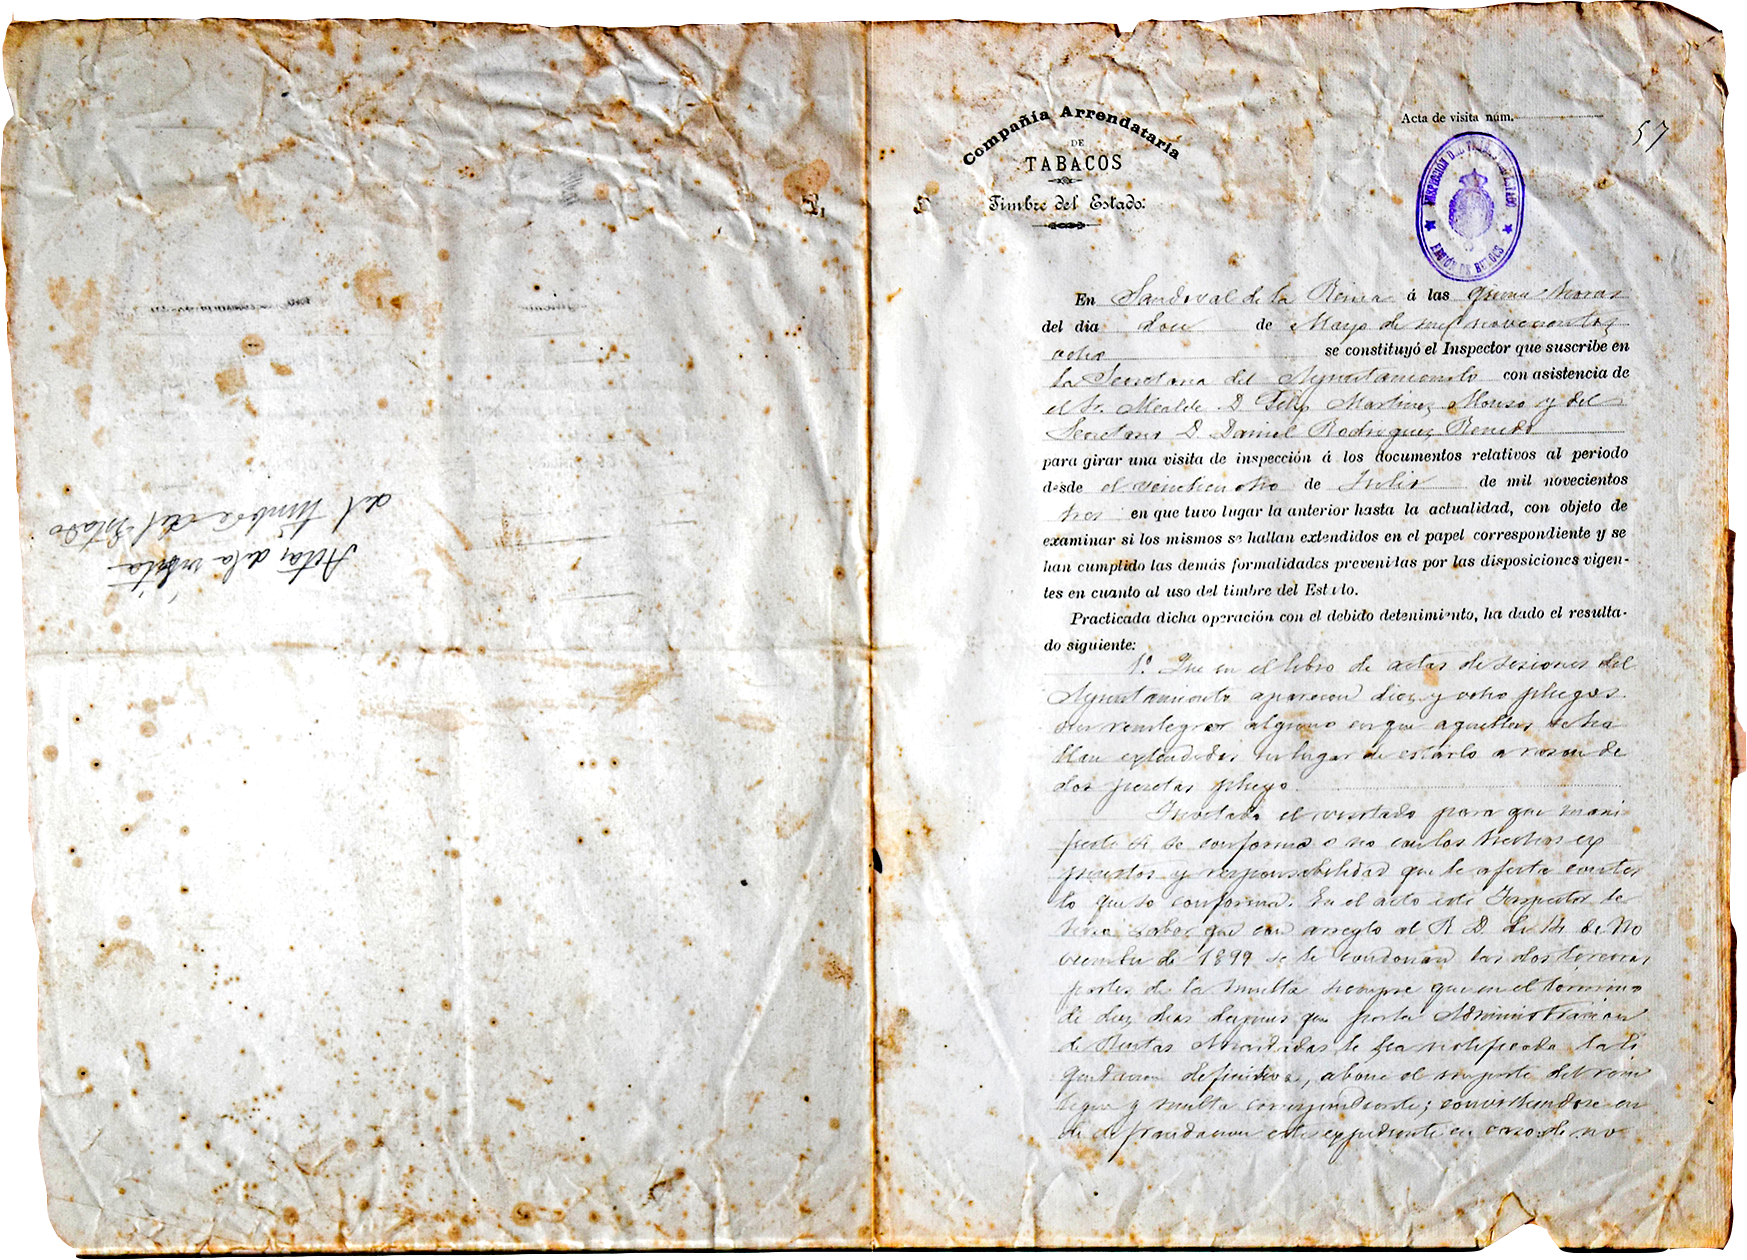 Actas de la visita
del timbre del Estado
Compañia Arrendataria
DE
TABACOS
Timbre del Estado.
Acta de visita núm.
57
INSPECCIÓN DEL TIMBRE DEL ESTADO
REGIÓN DE BURGOS
En Sandoval de la Reina á las quince horas
del dia doce de Mayo de mil novecientos
ocho se constituyó el Inspector que suscribe en
la Secretaria del Ayuntamiento con asistencia de
el Sr. Alcalde D. Felip Martinez Alonso y del
Secretario D. Daniel Rodriguez Benedo
para girar una visita de inspección á los documentos relativos al periodo
desde el veinticuatro de Julio de mil novecientos
tres en que tuvo lugar la anterior hasta la actualidad, con objeto de
examinar si los mismos se hallan extendidos en el papel correspondiente y se
han cumplido las demás formalidades prevenidas por las disposiciones vigen-
tes en cuanto al uso del timbre del Estado.
Practicada dicha operación con el debido detenimiento, ha dado el resulta-
do siguiente:
1º. Que en el libro de actas de sesiones del
Ayuntamiento aparecen diez y ocho pliegos
sin reintegrar alguno en que aquellas se ha
llan extendidas en lugar de estarlo a razon de
dos pesetas pliego.
Invitado el visitado para que mani
fieste si se conforma o no con los hechos ex
puestos y responsabilidad que le afecta contes
to que se conforma. En el acto este Inspector le
hizo saber que con arreglo al R. D. de 14 de No
viembre de 1899 se le condonan las dos terceras
partes de la multa siempre que en el termino
de diez dias despues que por la Administracion
de Rentas Arrendadas le sea notificada la li
quidacion definitiva, abone el importe del rein
tegro y multa correspondiente; convirtiendose en
de defraudacion este expediente en caso de no